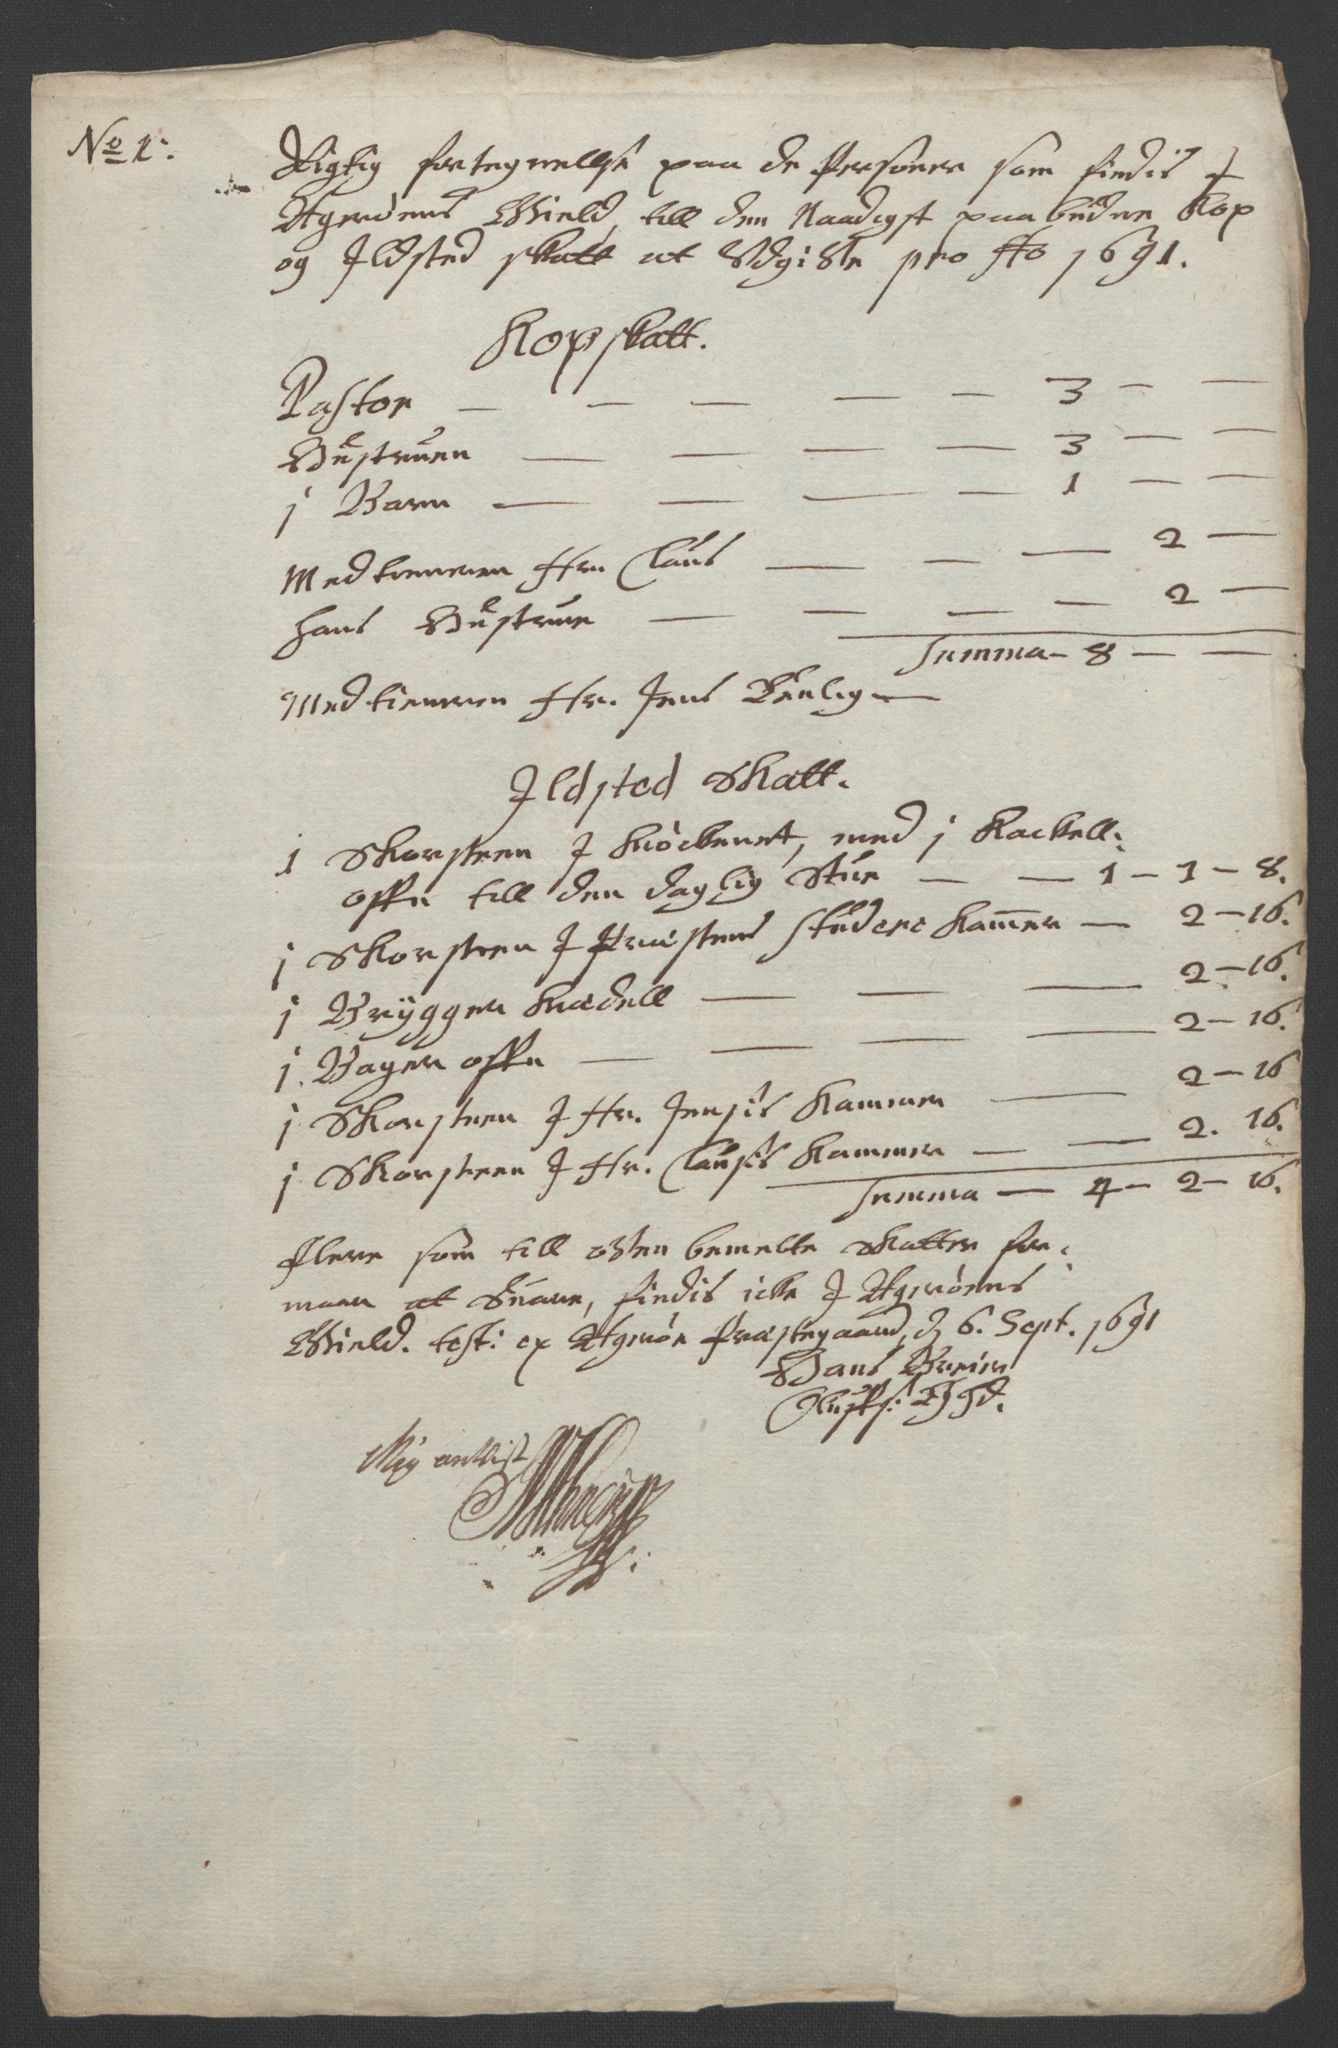 No 1.
Rigtig fortegnelse paa de Personer som findis J
Agerøens Gield, till den Naadigst paabudne Kop
og Jldsted skatt at Udgifve pro Ao 1691.
Kopskatt.
Pastor — — — — — 3 — —
Hustruen — — — — 3 — —
j Barn — — — — 1 — —
Medtienneren Hr. Claus — — — 2 —
hans Hustrue — — — — 2 —
Summa — 8 — —
Medtienneren Hr. Jens
Jldsted Skatt.
1 Skorsteen J Kiøckenet, med j Kackell-
offn till den daglig Stue — — 1 — 1 — 8.
j Skorsteen J Præstens Studere Kammer — 2 — 16.
j Brygger Kiedell — — — 2 — 16.
j Bager offn — — — — 2 — 16.
j Skorsteen J Hr. Jensis Kammer — 2 — 16
j Skorsteen J Hr. Clausis Kammer — — 2. 16.
Summa — 4 — 2 — 16.
Flere som till ofven bemelte Skatter for-
maar at Suare, findis icke J Agerøens
Gield. test: ex Agerøe Præstegaard, d 6. Sept. 1691
Hans
Mig